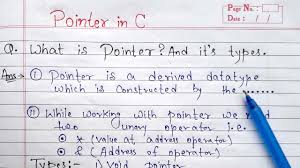 Pointer in C
Page No.:
Date: / /
Q. What is Pointer? And it's types.
Ans → ① Pointer is a derived datatype
which is constructed by the ........
② While working with pointer we
two unary operator i.e.
* (value at address operator)
& (Address of operator)
Types:- 1) Void pointer